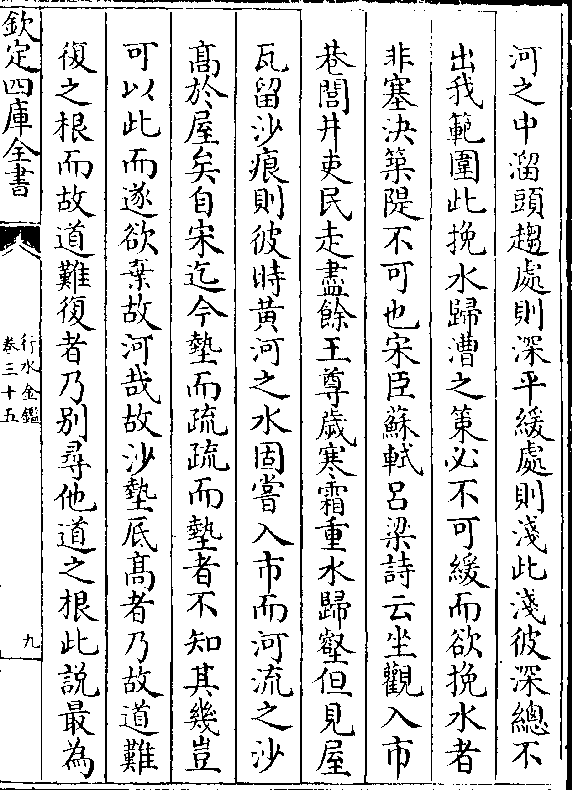 河之中溜頭趨處則深平緩處則淺此淺彼深總不
出我範圍此挽水歸漕之策必不可緩而欲挽水者
非塞決築隄不可也宋臣蘇軾呂梁詩云坐觀入市
巷閭井吏民走盡餘王尊歲寒霜重水歸壑但見屋
瓦留沙痕則彼時黃河之水固嘗入市而河流之沙
高於屋矣自宋迄今墊而疏疏而墊者不知其幾豈
可以此而遂欲棄故河哉故沙墊底高者乃故道難
復之根而故道難復者乃別尋他道之根此說最為
欽定四庫全書
行水金鑑
卷三十五
九